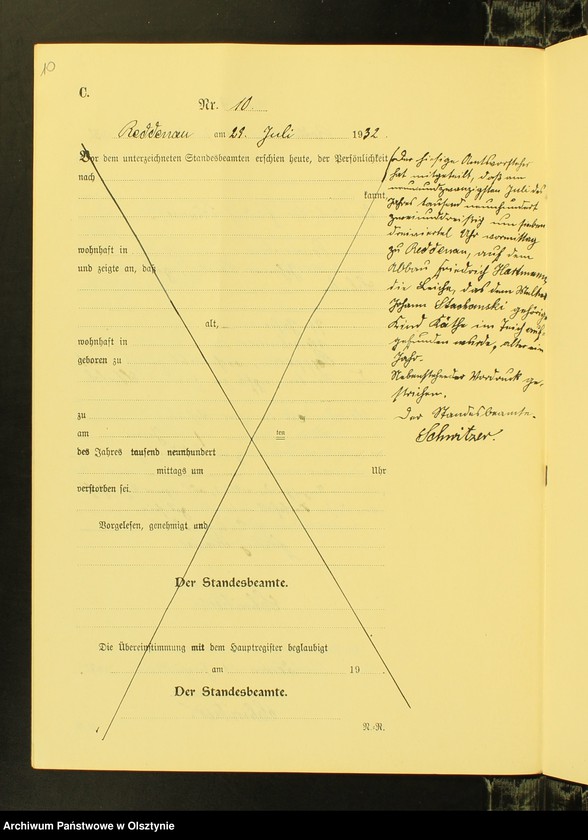 10
C.
Nr. 10.
Reddenau am 29. Juli 1932.
Vor dem unterzeichneten Standesbeamten erschien heute, der Persönlichkeit
nach
kannt,
wohnhaft in
und zeigte an, daß
alt,
wohnhaft in
geboren zu
zu
am ten
des Jahres tausend neunhundert
mittags um Uhr
verstorben sei.
Vorgelesen, genehmigt und
Der Standesbeamte.
Die Übereinstimmung mit dem Hauptregister beglaubigt
am 19
Der Standesbeamte.
N.-R.
Der hiesige Amtsvorsteher
hat mitgeteilt, daß am
neunundzwanzigsten Juli des
Jahres tausend neunhundert
zweiunddreißig um sieben
dreiviertel Uhr vormittag
zu Reddenau, auf dem
Abbau Friedrich Hartmann,
die Leiche, das dem
Johann gehörige
Kind Käthe im Teich auf-
gefunden wurde, alt ein
Jahr.
Nebenstehender Vordruck ge-
strichen.
Der Standesbeamte.
Schwitzer.
Archiwum Państwowe w Olsztynie